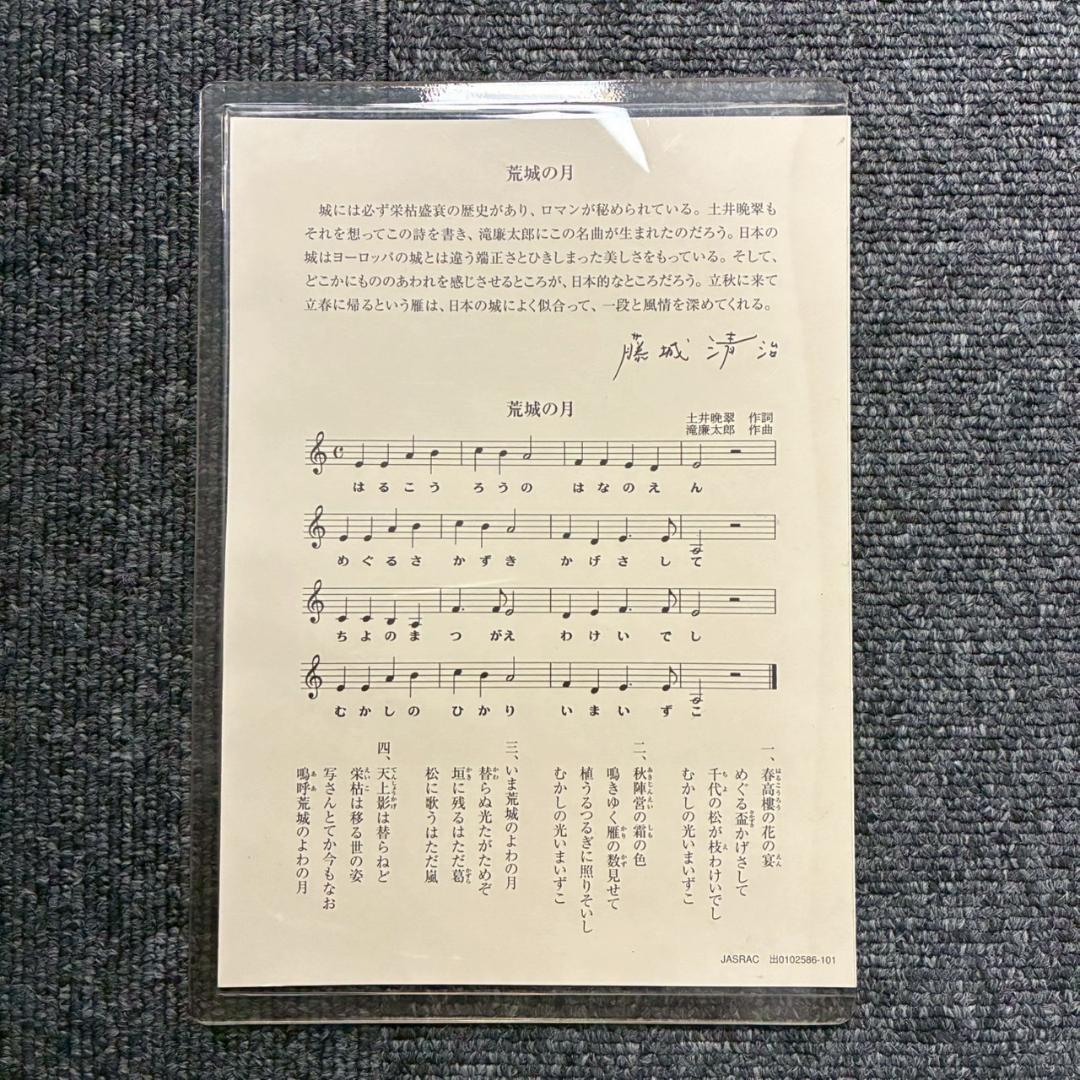 荒城の月
城には必ず栄枯盛衰の歴史があり、ロマンが秘められている。土井晩翠も
それを想ってこの詩を書き、滝廉太郎にこの名曲が生まれたのだろう。日本の
城はヨーロッパの城とは違う端正さとひきしまった美しさをもっている。そして、
どこかにもののあわれを感じさせるところが、日本的なところだろう。立秋に来て
立春に帰るという雁は、日本の城によく似合って、一段と風情を深めてくれる。
藤城清治
荒城の月
土井晩翠 作詞
滝廉太郎 作曲
はるこうろうの はなのえん
めぐるさかずき かげさして
ちよのまつがえ わけいでし
むかしのひかり いまいずこ
一、春高樓の花の宴
はるこうろう えん
めぐる盃かげさして
さかずき
千代の松が枝わけいでし
ちよ え
むかしの光いまいずこ
二、秋陣営の霜の色
あきじんえい しも
鳴きゆく雁の数見せて
かり かず
植うるつるぎに照りそいし
むかしの光いまいずこ
三、いま荒城のよわの月
替らぬ光たがためぞ
かわ
垣に残るはただ葛
かき かずら
松に歌うはただ嵐
四、天上影は替らねど
てんじょうかげ
栄枯は移る世の姿
えいこ
写さんとてか今もなお
嗚呼荒城のよわの月
ああ
JASRAC 出0102586-101